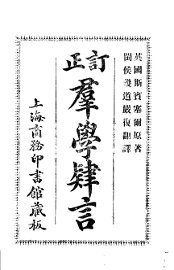 英國斯賓塞爾原著
閩侯嚴幾道嚴復翻譯
訂正
羣學肄言
上海商務印書館藏板